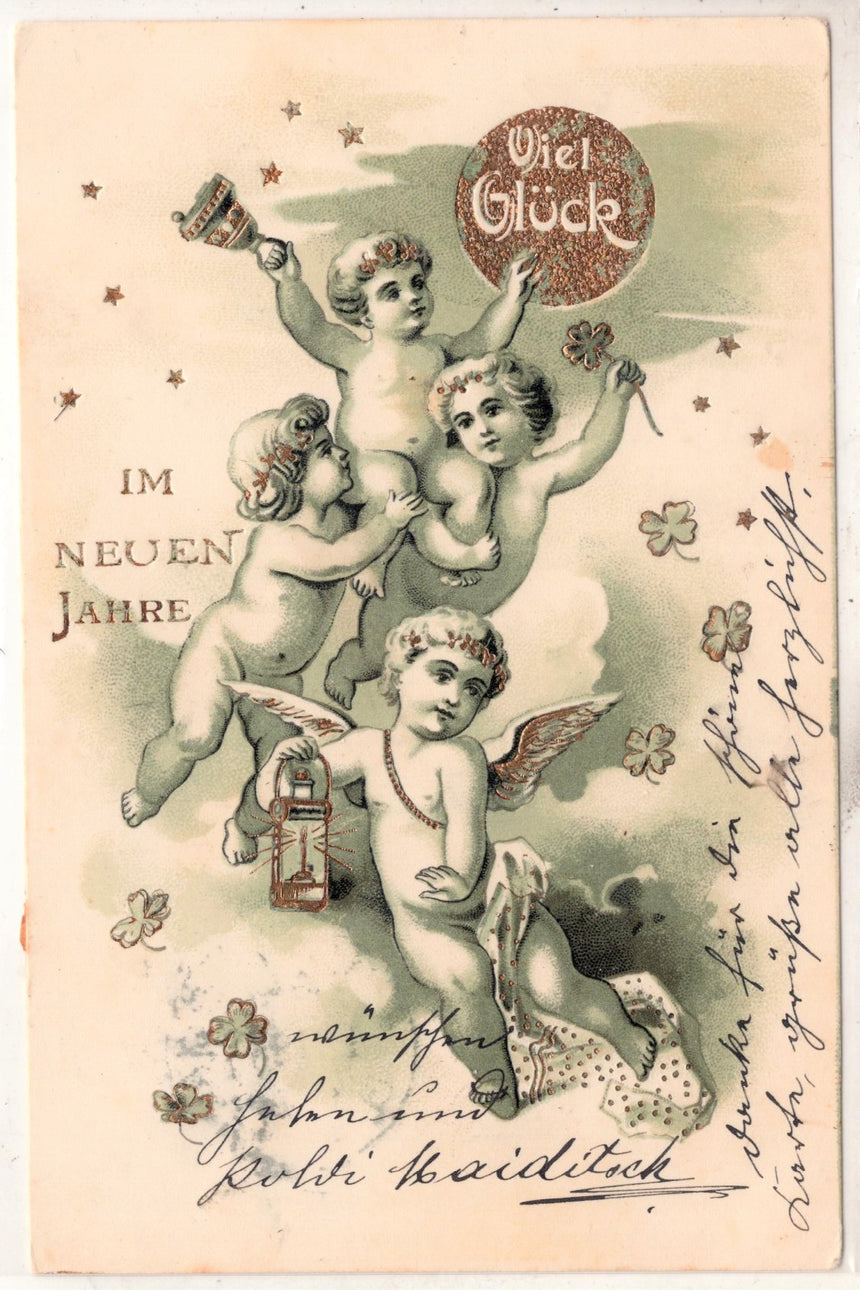 Viel
Glück
IM
NEUEN
JAHRE
wünschen
Helen und
Poldi Maiditsch
Danke für die schöne
Karte, grüße alle herzlichst.